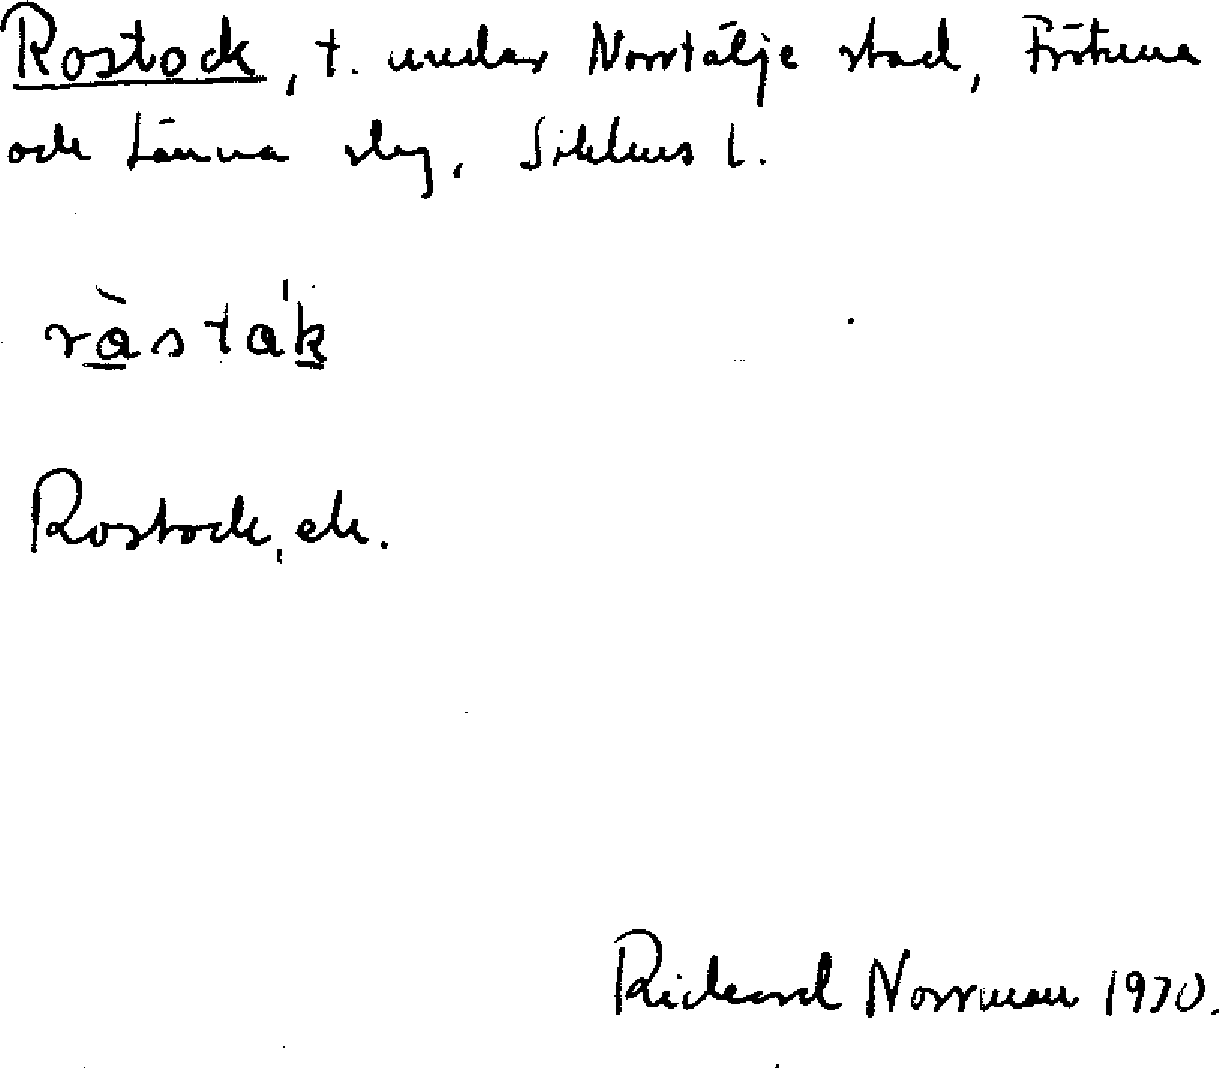 Rostock, t. under Norrtälje stad, Frötuna
och Länna slg, Sjuhundra
råstak
Rostock, ek.
Rickard Norrman 1970.